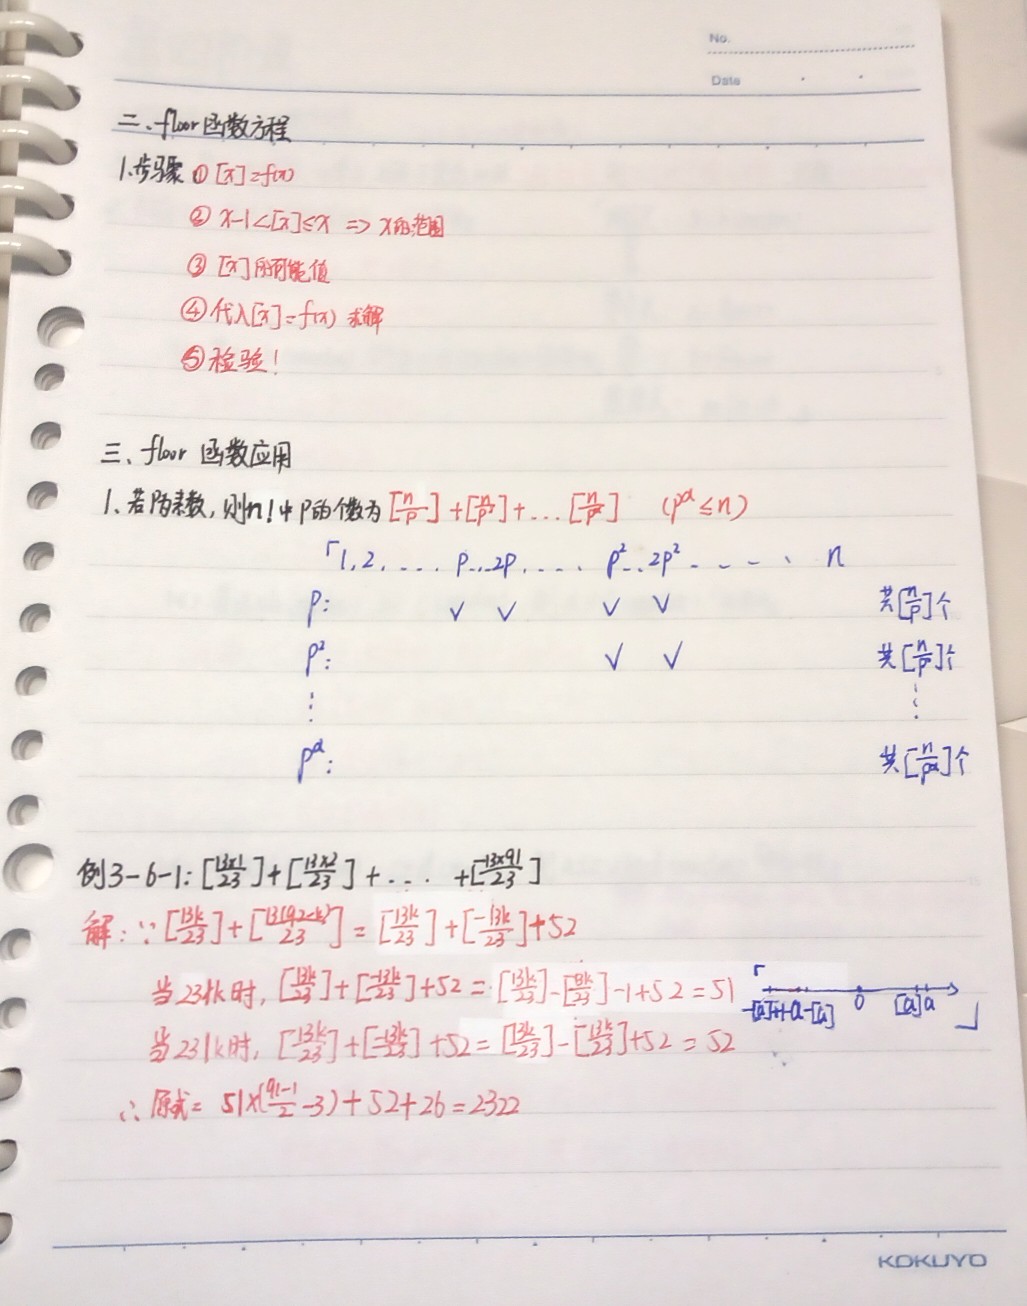 No.
Date
二、floor函数方程
1.步骤 ① [x]=f(x)
② x-1<[x]≤x => x的范围
③ [x]的可能值
④ 代入[x]=f(x) 求解
⑤ 检验!
三、floor 函数应用
1、若P为素数,则n!中P的个数为[n/p]+[n/p²]+...[n/pᵅ] (pᵅ≤n)
「1,2,.... p...2p,.... p²..2p²..... n
p: √ √ √ √ 共[n/p]个
p²: √ √ 共[n/p²]个
⋮ ⋮
pᵅ: 共[n/pᵅ]个
例3-6-1: [13×1/23]+[13×2/23]+.... +[13×91/23]
解: ∵[13k/23]+[13(92-k)/23]=[13k/23]+[-13k/23]+52
当23∤k时, [13k/23]+[-13k/23]+52=[13k/23]-[13k/23]-1+52=51
「 -[a]-1 -a -[a] 0 [a] a 」
当23|k时, [13k/23]+[-13k/23]+52=[13k/23]-[13k/23]+52=52
∴ 原式= 51×(91-1/2-3)+52+26=2322
KOKUYO